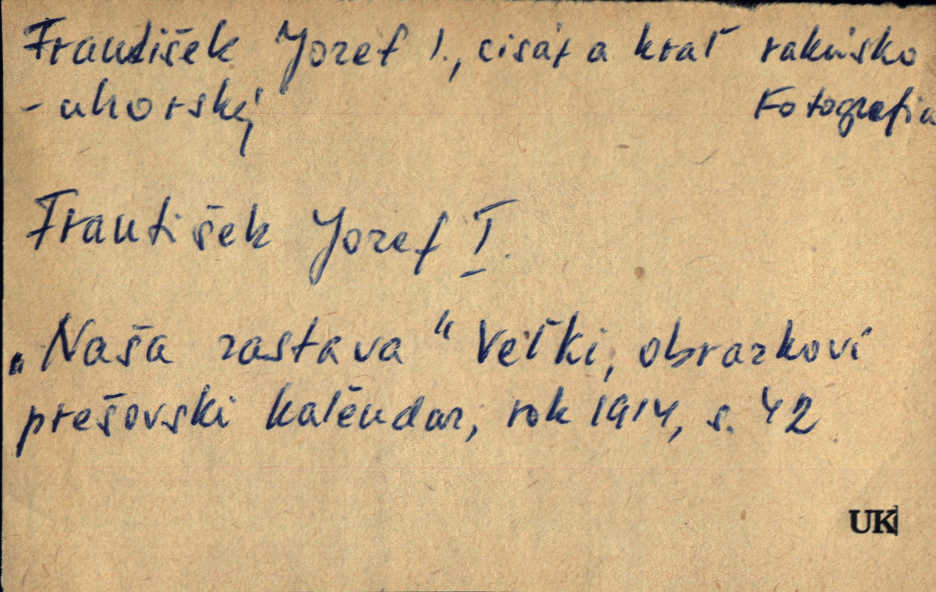 František Jozef I., cisár a kráľ rakúsko
- uhorský Fotografia
František Jozef I.
„Naša zastava“ Veľki, obrazkovi
prešovski kalěndar, rok 1914, s. 42
UK